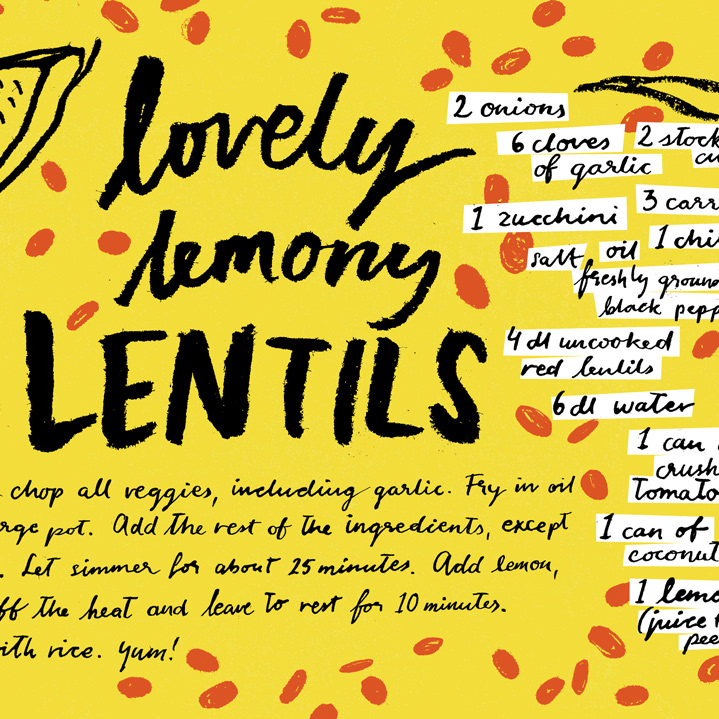 lovely
lemony
LENTILS
2 onions
6 cloves
of garlic
2 stock
cu
1 zucchini
3 carr
salt
oil
1 chi
freshly groun
black pepp
4 dl uncooked
red lentils
6 dl water
1 can
crush
tomato
1 can of
coconut
1 lemo
(juice
pee
chop all veggies, including garlic. Fry in oil
arge pot. Add the rest of the ingredients, except
. Let simmer for about 25 minutes. Add lemon,
ff the heat and leave to rest for 10 minutes.
ith rice. Yum!